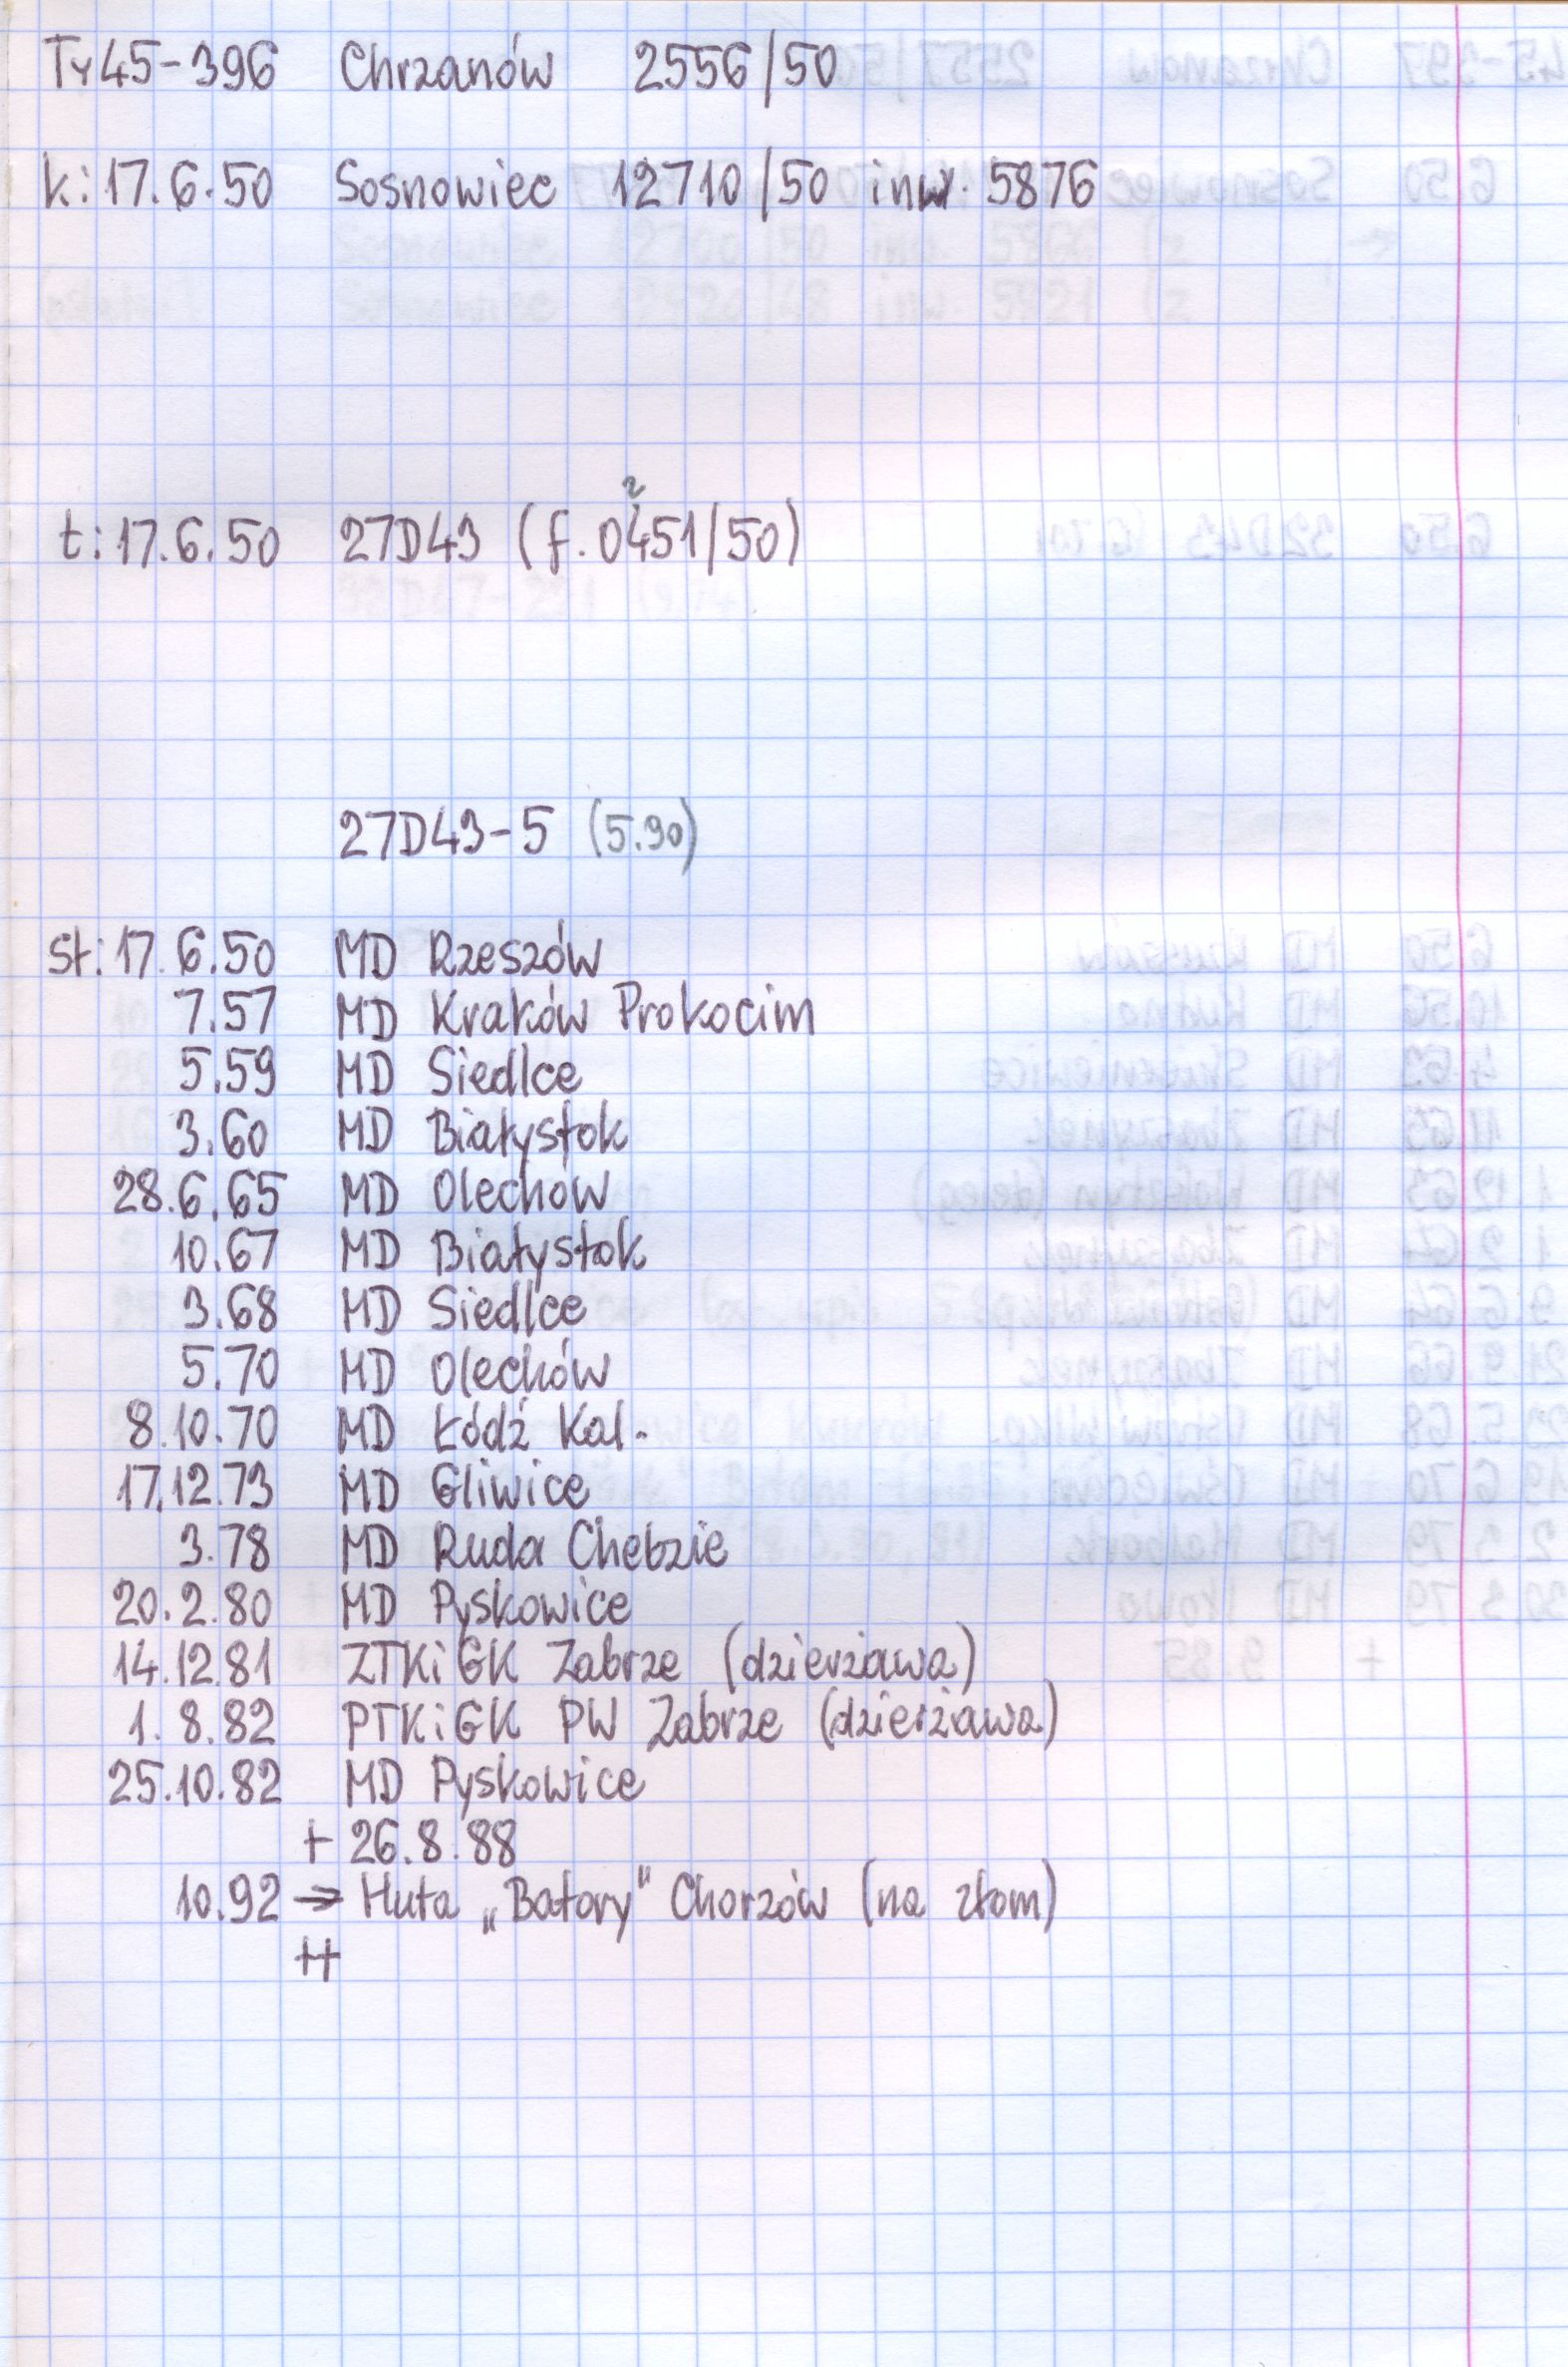 Ty45-396 Chrzanów 2556/50
k: 17.6.50 Sosnowiec 12710/50 inw. 5876
2
t: 17.6.50 27D43 (f. 0451/50)
27D43-5 (5.90)
st: 17.6.50 MD Rzeszów
7.57 MD Kraków Prokocim
5.59 MD Siedlce
3.60 MD Białystok
28.6.65 MD Olechów
10.67 MD Białystok
3.68 MD Siedlce
5.70 MD Olechów
8.10.70 MD Łódź Kal.
17.12.73 MD Gliwice
3.78 MD Ruda Chebzie
20.2.80 MD Pyskowice
14.12.81 ZTKiGK Zabrze (dzierżawa)
1.8.82 PTKiGK PW Zabrze (dzierżawa)
25.10.82 MD Pyskowice
+ 26.8.88
10.92 → Huta „Batory" Chorzów (na złom)
++